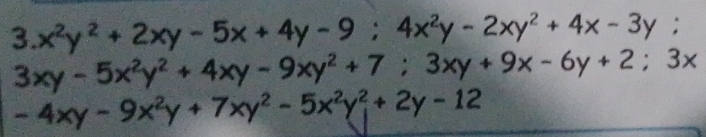 3.x²y² + 2xy - 5x + 4y - 9 ; 4x²y - 2xy² + 4x - 3y ;
3xy - 5x²y² + 4xy - 9xy² + 7 ; 3xy + 9x - 6y + 2 ; 3x
- 4xy - 9x²y + 7xy² - 5x²y² + 2y - 12